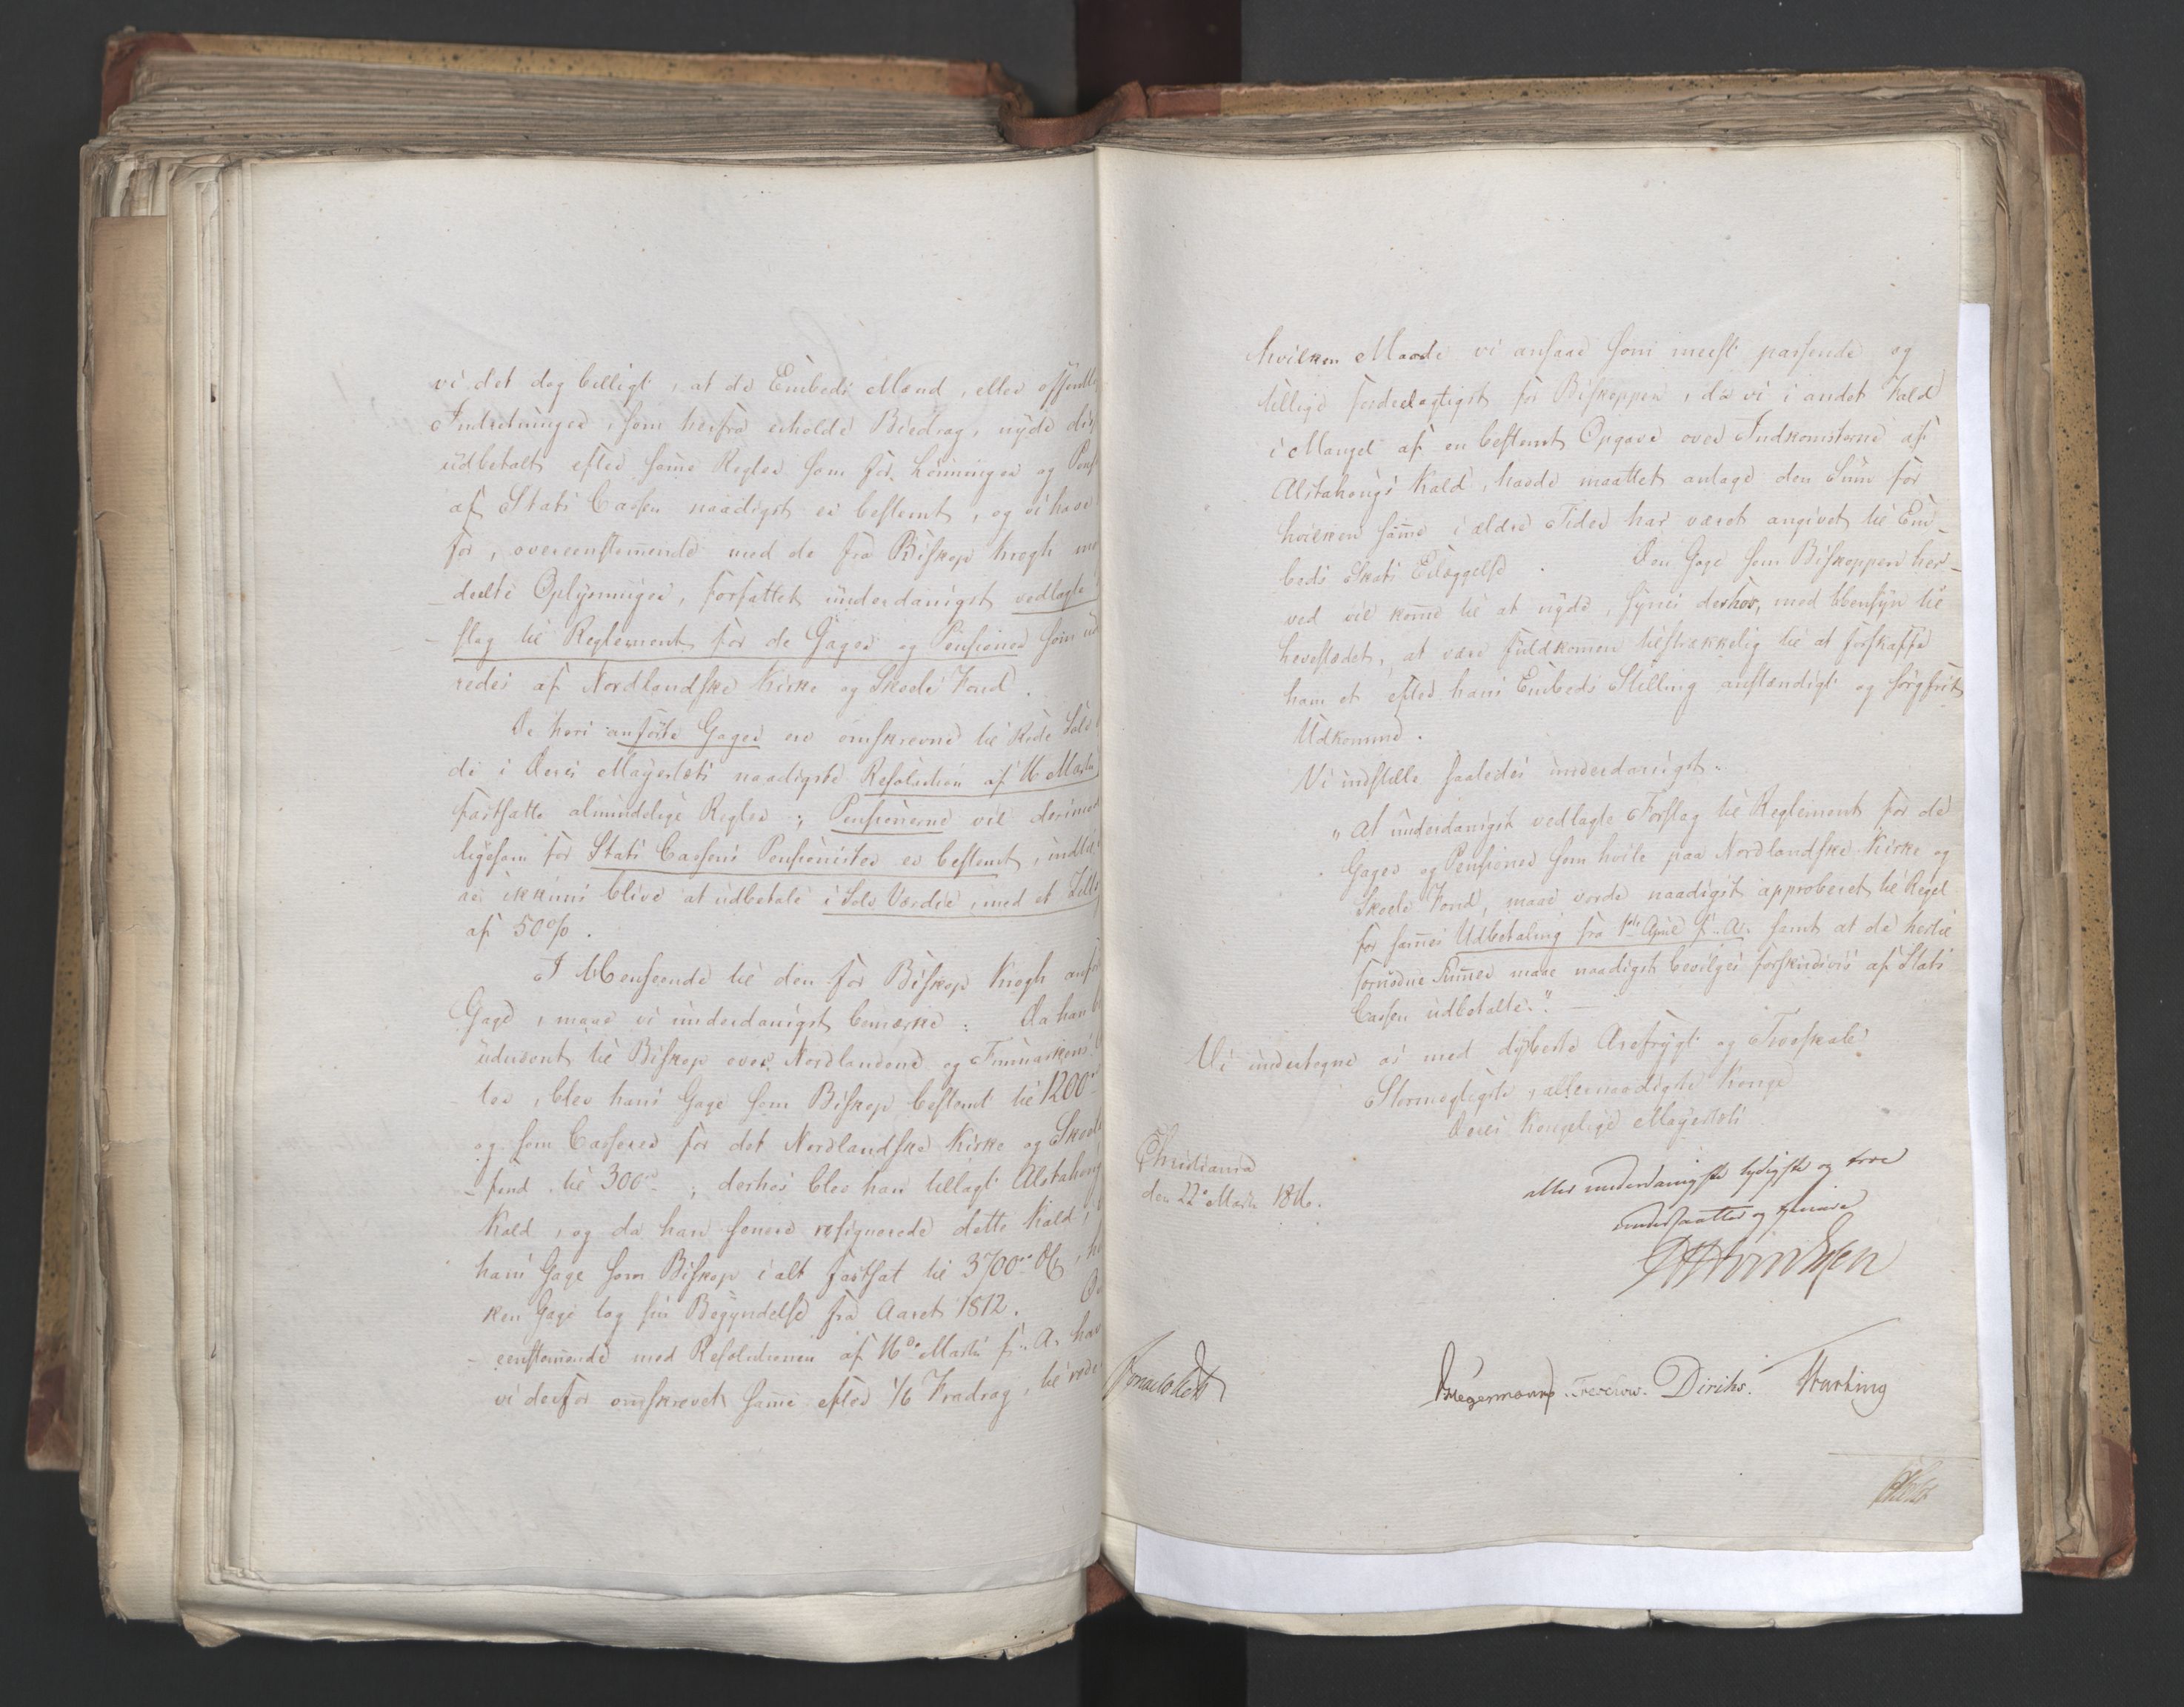 vi det dog billigt, at de Embeds Mænd, eller offentli
Indretninger, som herfra erholde Biedrag, nyde dis
udbetalt efter samme Regler som for Lønninger og Pens
af Stats Cassen naadigst er bestemt, og vi have
for, overeenstem̅ende med de fra Biskop Krogh me
deelte Oplysninger, forfattet underdanigst vedlagte
slag til Reglement for de Gager og Pensioner som ud
redes af Nordlandske Kirke og Skole Fond.
De heri anførte Gager ere omskrevne til Rede Sølv
de i Deres Mayestæts naadigste Resolution af 16 Marts
fastsatte almindelige Regler; Pensionerne vil derimod
ligesom for Stats Cassens Pensionister er bestemt, indtil
res ikkuns blive at udbetale i Sølv Værdie, med et Till
af 50%.
I Henseende til den for Biskop Krogh anfø
Gage, maae vi underdanigst bemærke: Da han b
udnævnt til Biskop over Nordlandene og Finmarkens
ter, blev hans Gage som Biskop bestemt til 1200
og som Casserer for det Nordlandske Kirke og Skole
fond til 300; derhos blev han tillagt Alstahoug
Kald, og da han senere resignerede dette Kald,
hans Gage som Biskop i alt fastsat til 3700
ken Gage tog sin Begyndelse fra Aaret 1812.
eenstem̅ende med Resolutionen af 16de Marts f. A. have
vi derfor omskrevet sam̅e efter 1/6 Fradrag, til rede
hvilken Maade vi ansaae som meest passende og
tillige fordeelagtigst for Biskoppen, da vi i andet Fald
i Mangel af en bestemt Opgave over Indkomsterne af
Alstahougs Kald, havde maattet antage den Sum for
hvilken sam̅e i ældre Tider har været angivet til Em-
beds Skats Erlæggelse. Den Gage som Biskoppen her-
ved vil kom̅e til at nyde, synes derhos, med Hensyn til
hovestædet, at være fuldkom̅en tilstrækkelig til at forskaffe
ham et efter hans Embeds Stilling anstændigt og sorgfrit
Udkomme.
Vi indstille saaledes underdanigst:
"At underdanigst vedlagte Forslag til Reglement for de
Gager og Pensioner som hvile paa Nordlandske Kirke og
Skole Fond, maae vorde naadigst approberet til Regel
for sam̅es Udbetaling fra 1ste April f. A. samt at de hertil
fornødne Sum̅er maae naadigst bevilges forskudsviis af Stats
Cassen udbetalte."
Vi undertegne os med dybeste Ærefrygt og Troeskab
Stormægtigste, allernaadigste Konge
Deres Kongelige Mayestæts
Christiania
den 22de Marts 1816.
aller underdanigste lydigste og troe
undersaatter og tienere
Sommerhielm
Hegermann Treschow. Diriks. Krebting